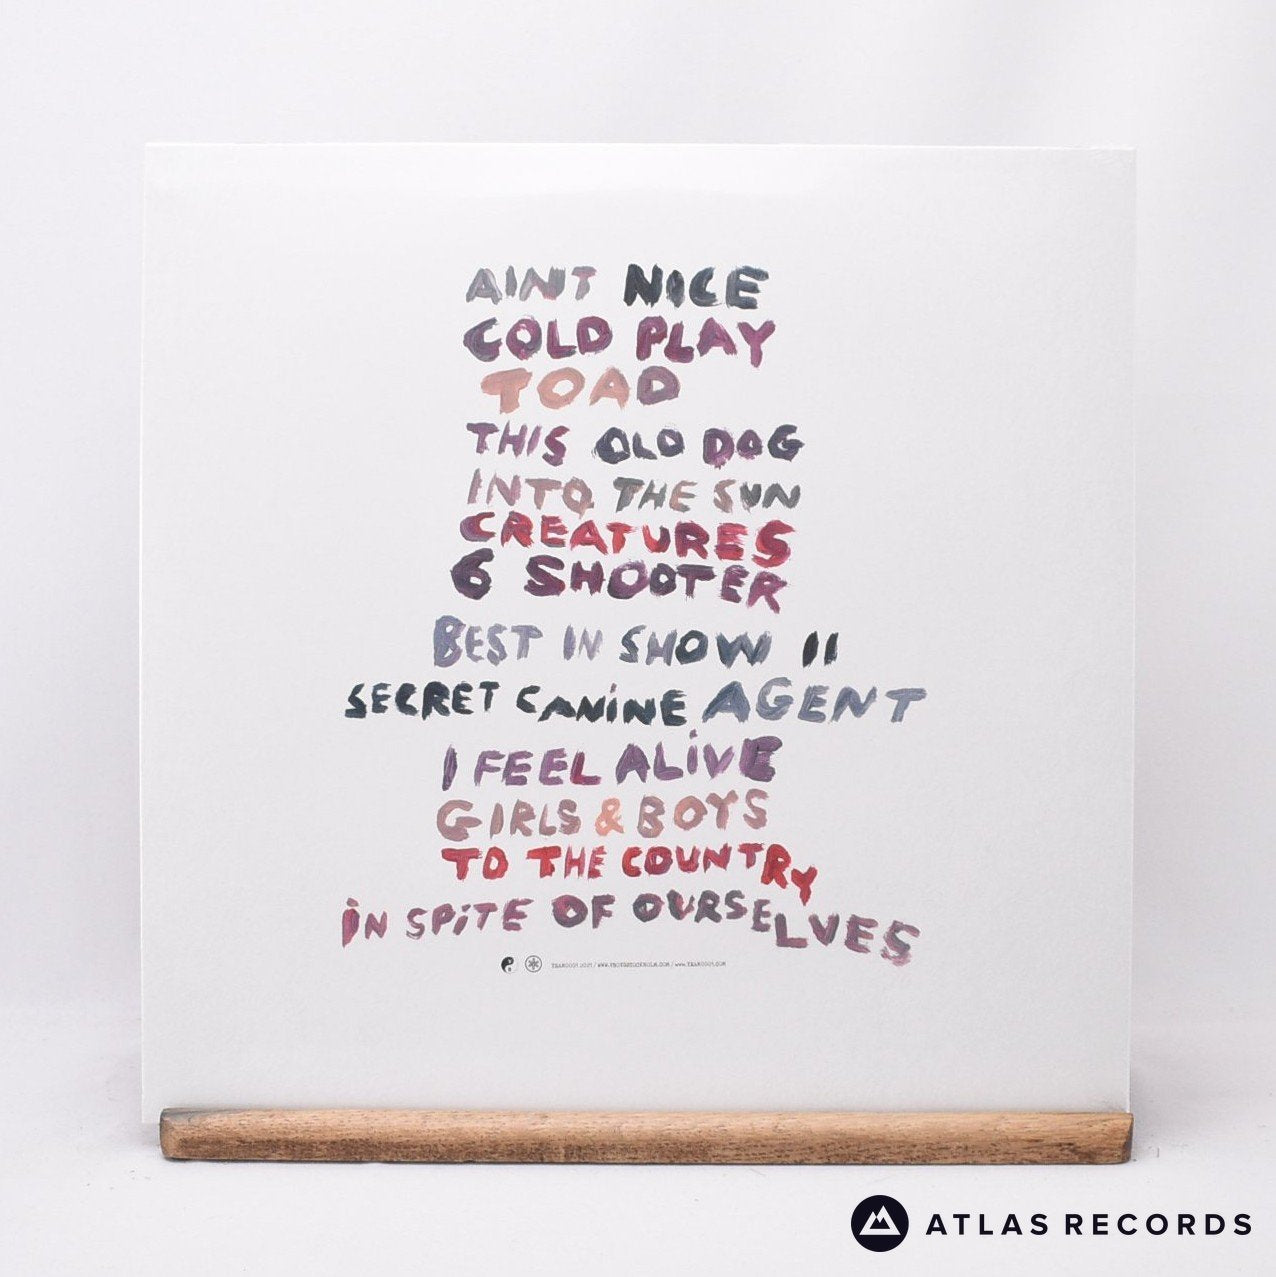 AINT NICE
COLD PLAY
TOAD
THIS OLD DOG
INTO THE SUN
CREATURES
6 SHOOTER
BEST IN SHOW II
SECRET CANiNE AGENT
I FEEL ALiVE
GIRLS & BOYS
TO THE COUNTRY
iN SPiTE OF OURSELVES
YEAR0001 2021 / WWW.VBOYSSTOCKHOLM.COM / WWW.YEAR0001.COM
ATLAS RECORDS